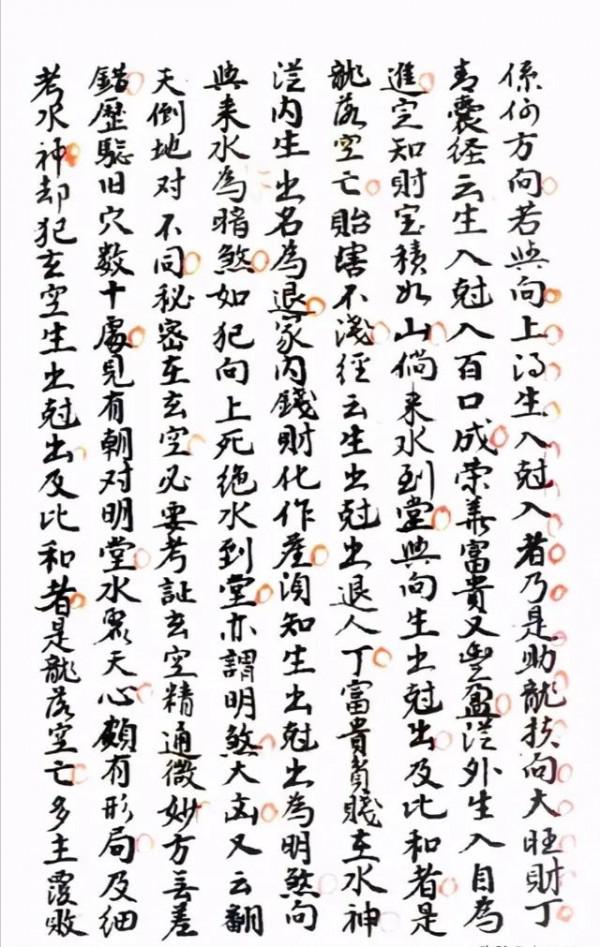 係何方向若與向上得生入尅入者乃是助龍扶向大旺財丁
青囊经云生入尅入百口成荣華富貴又豐盈從外生入自為
進定知財宝積如山倘来水到堂與向生出尅出及比和者是
龍落空亡貽害不淺經云生出尅出退人丁富貴貧賤在水神
從内生出名為退家内錢財化作塵須知生出尅出為明煞向
與来水為暗煞如犯向上死绝水到堂亦謂明煞大凶又云翻
天倒地对不同秘密在玄空必要考証玄空精通微妙方無差
錯歷驗旧穴数十處見有朝对明堂水聚天心頗有形局及细
考水神却犯玄空生出尅出及比和者是龍落空亡多主覆敗